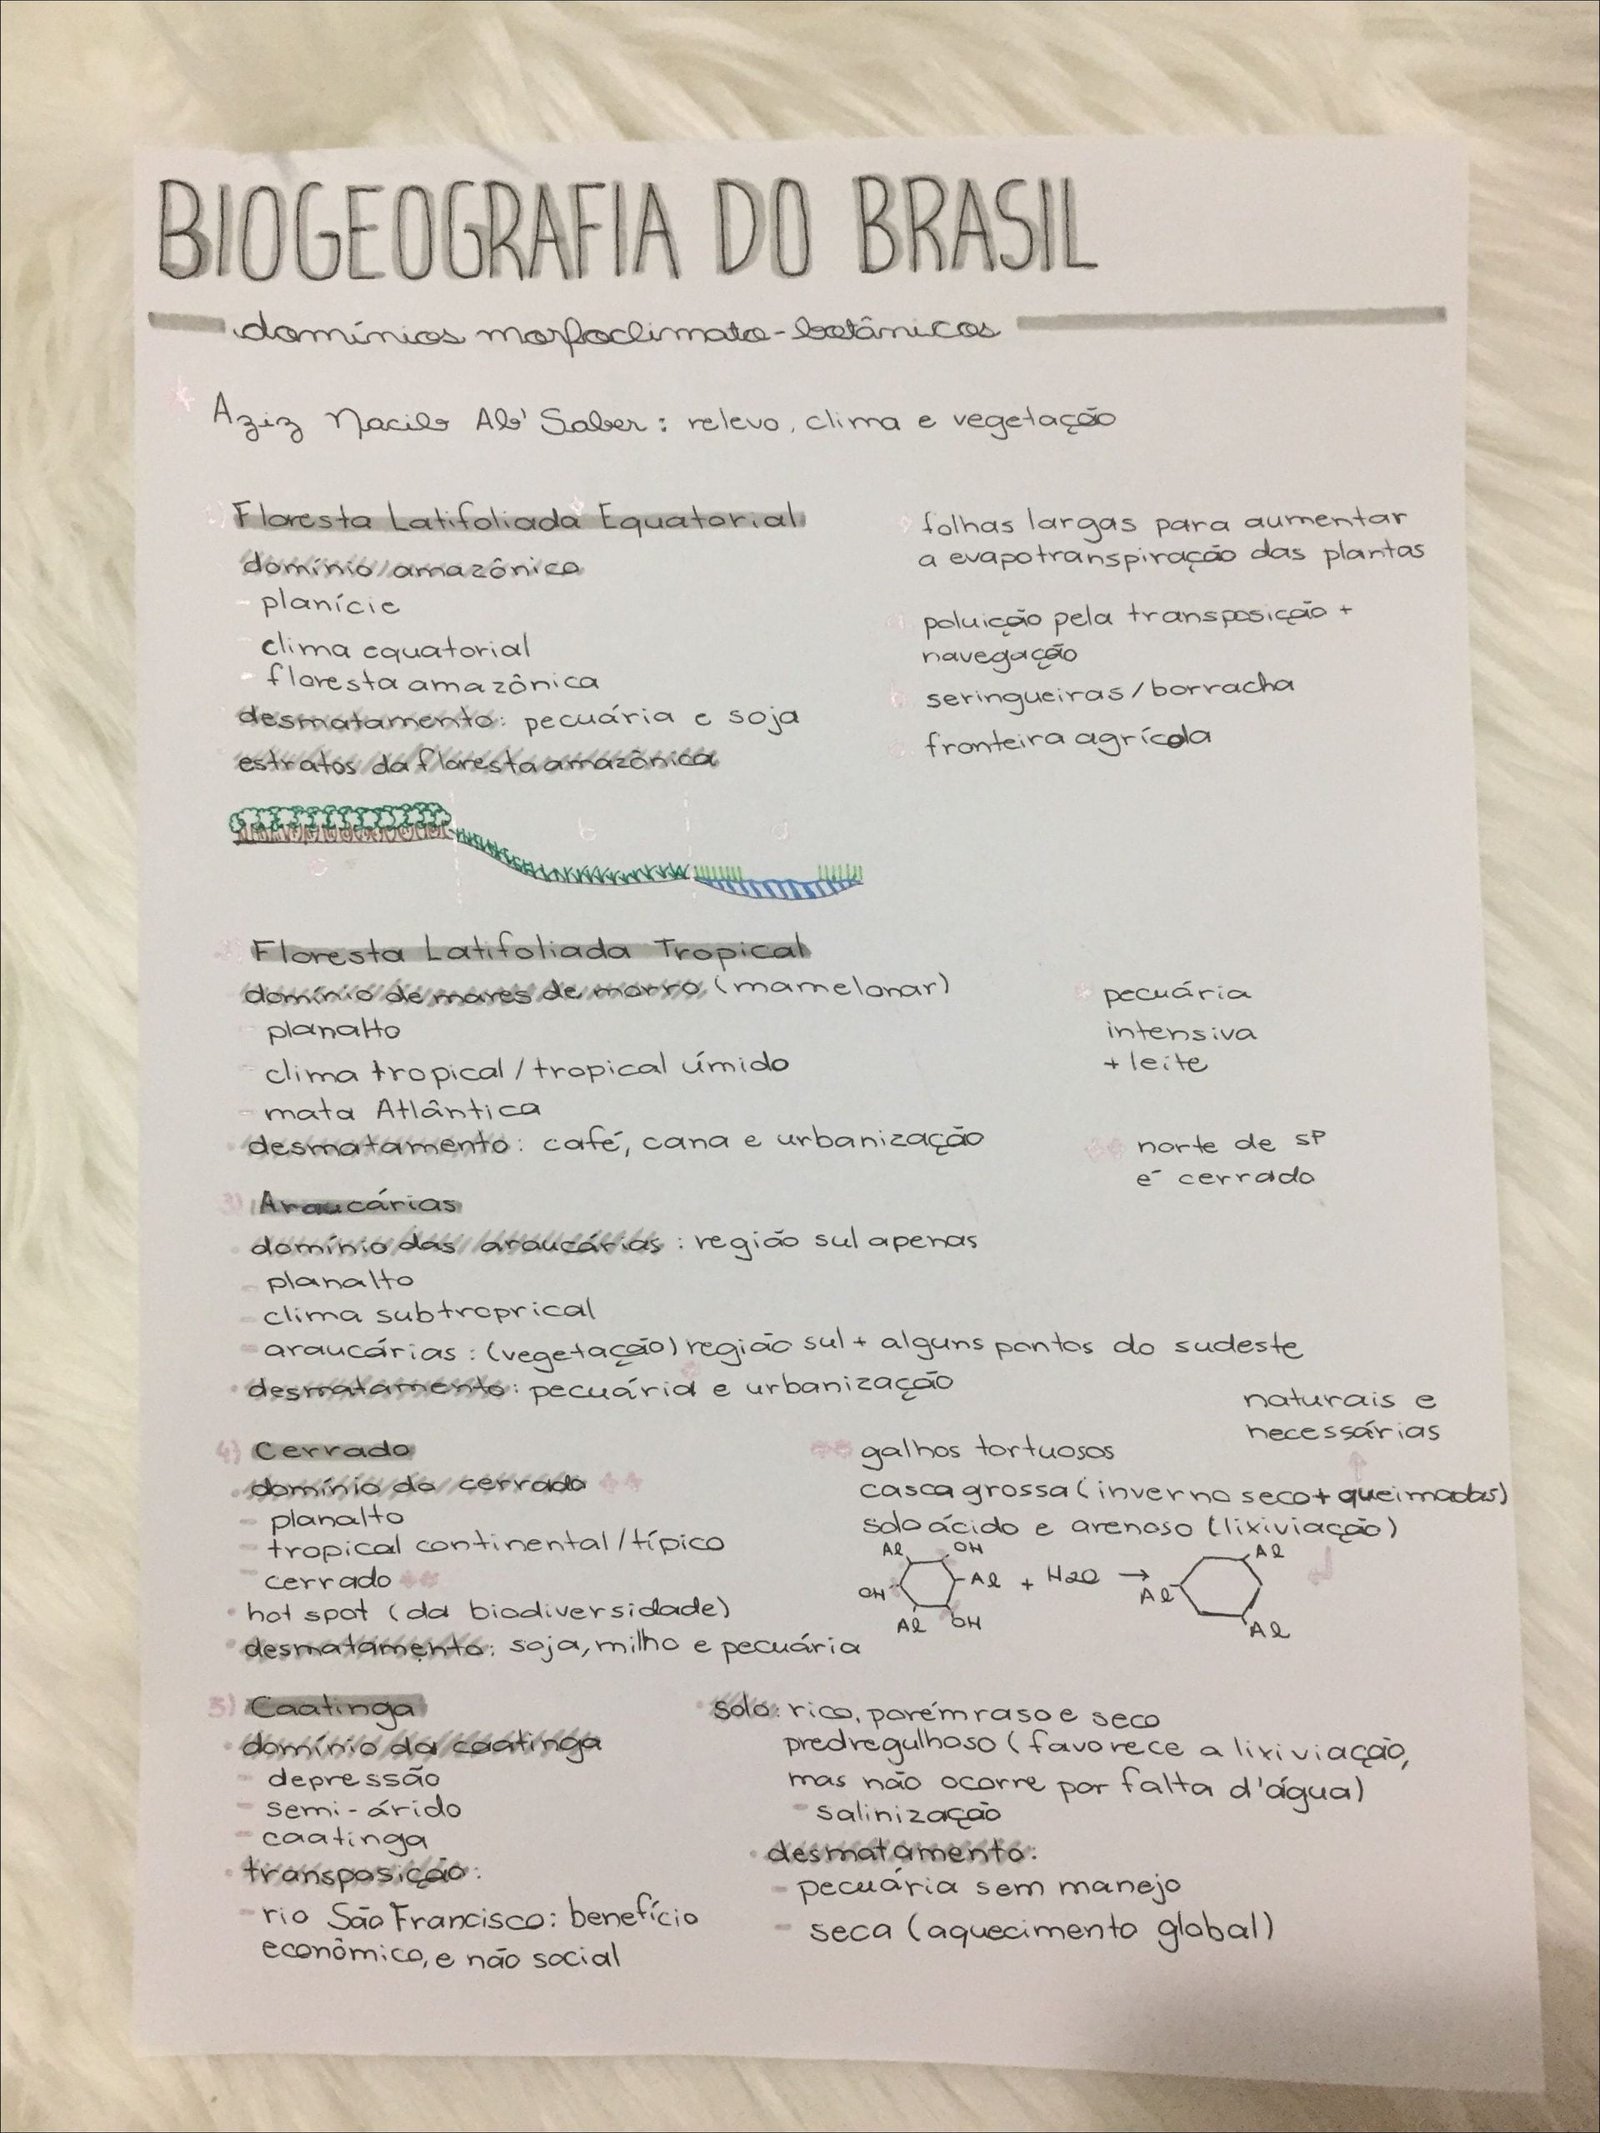 BIOGEOGRAFIA DO BRASIL
domínios morfoclimato-botânicos
* Aziz Nacib Ab'Saber: relevo, clima e vegetação
Floresta Latifoliada Equatorial
domínio amazônico
- planície
- clima equatorial
- floresta amazônica
desmatamento: pecuária e soja
estratos da floresta amazônica
folhas largas para aumentar
a evapotranspiração das plantas
a) poluição pela transposição +
navegação
b) seringueiras/borracha
c) fronteira agrícola
c b a
2) Floresta Latifoliada Tropical
domínio de mares de morro (mamelonar)
- planalto
- clima tropical / tropical úmido
- mata Atlântica
• desmatamento: café, cana e urbanização
* pecuária
intensiva
+ leite
** norte de SP
é cerrado
3) Araucárias
domínio das araucárias: região sul apenas
- planalto
- clima subtroprical
- araucárias: (vegetação) região sul + alguns pontos do sudeste
• desmatamento: pecuária e urbanização
4) Cerrado
• domínio do cerrado **
- planalto
- tropical continental/típico
- cerrado **
• hot spot (da biodiversidade)
• desmatamento: soja, milho e pecuária
naturais e
necessárias
** galhos tortuosos
casca grossa (inverno seco + queimadas)
solo ácido e arenoso (lixiviação)
Al OH
OH Al + H2O → Al Al
Al OH Al
5) Caatinga
• domínio da caatinga
- depressão
- semi-árido
- caatinga
• transposição:
- rio São Francisco: benefício
econômico, e não social
• solo: rico, porém raso e seco
predregulhoso (favorece a lixiviação,
mas não ocorre por falta d'água)
- salinização
• desmatamento:
- pecuária sem manejo
- seca (aquecimento global)